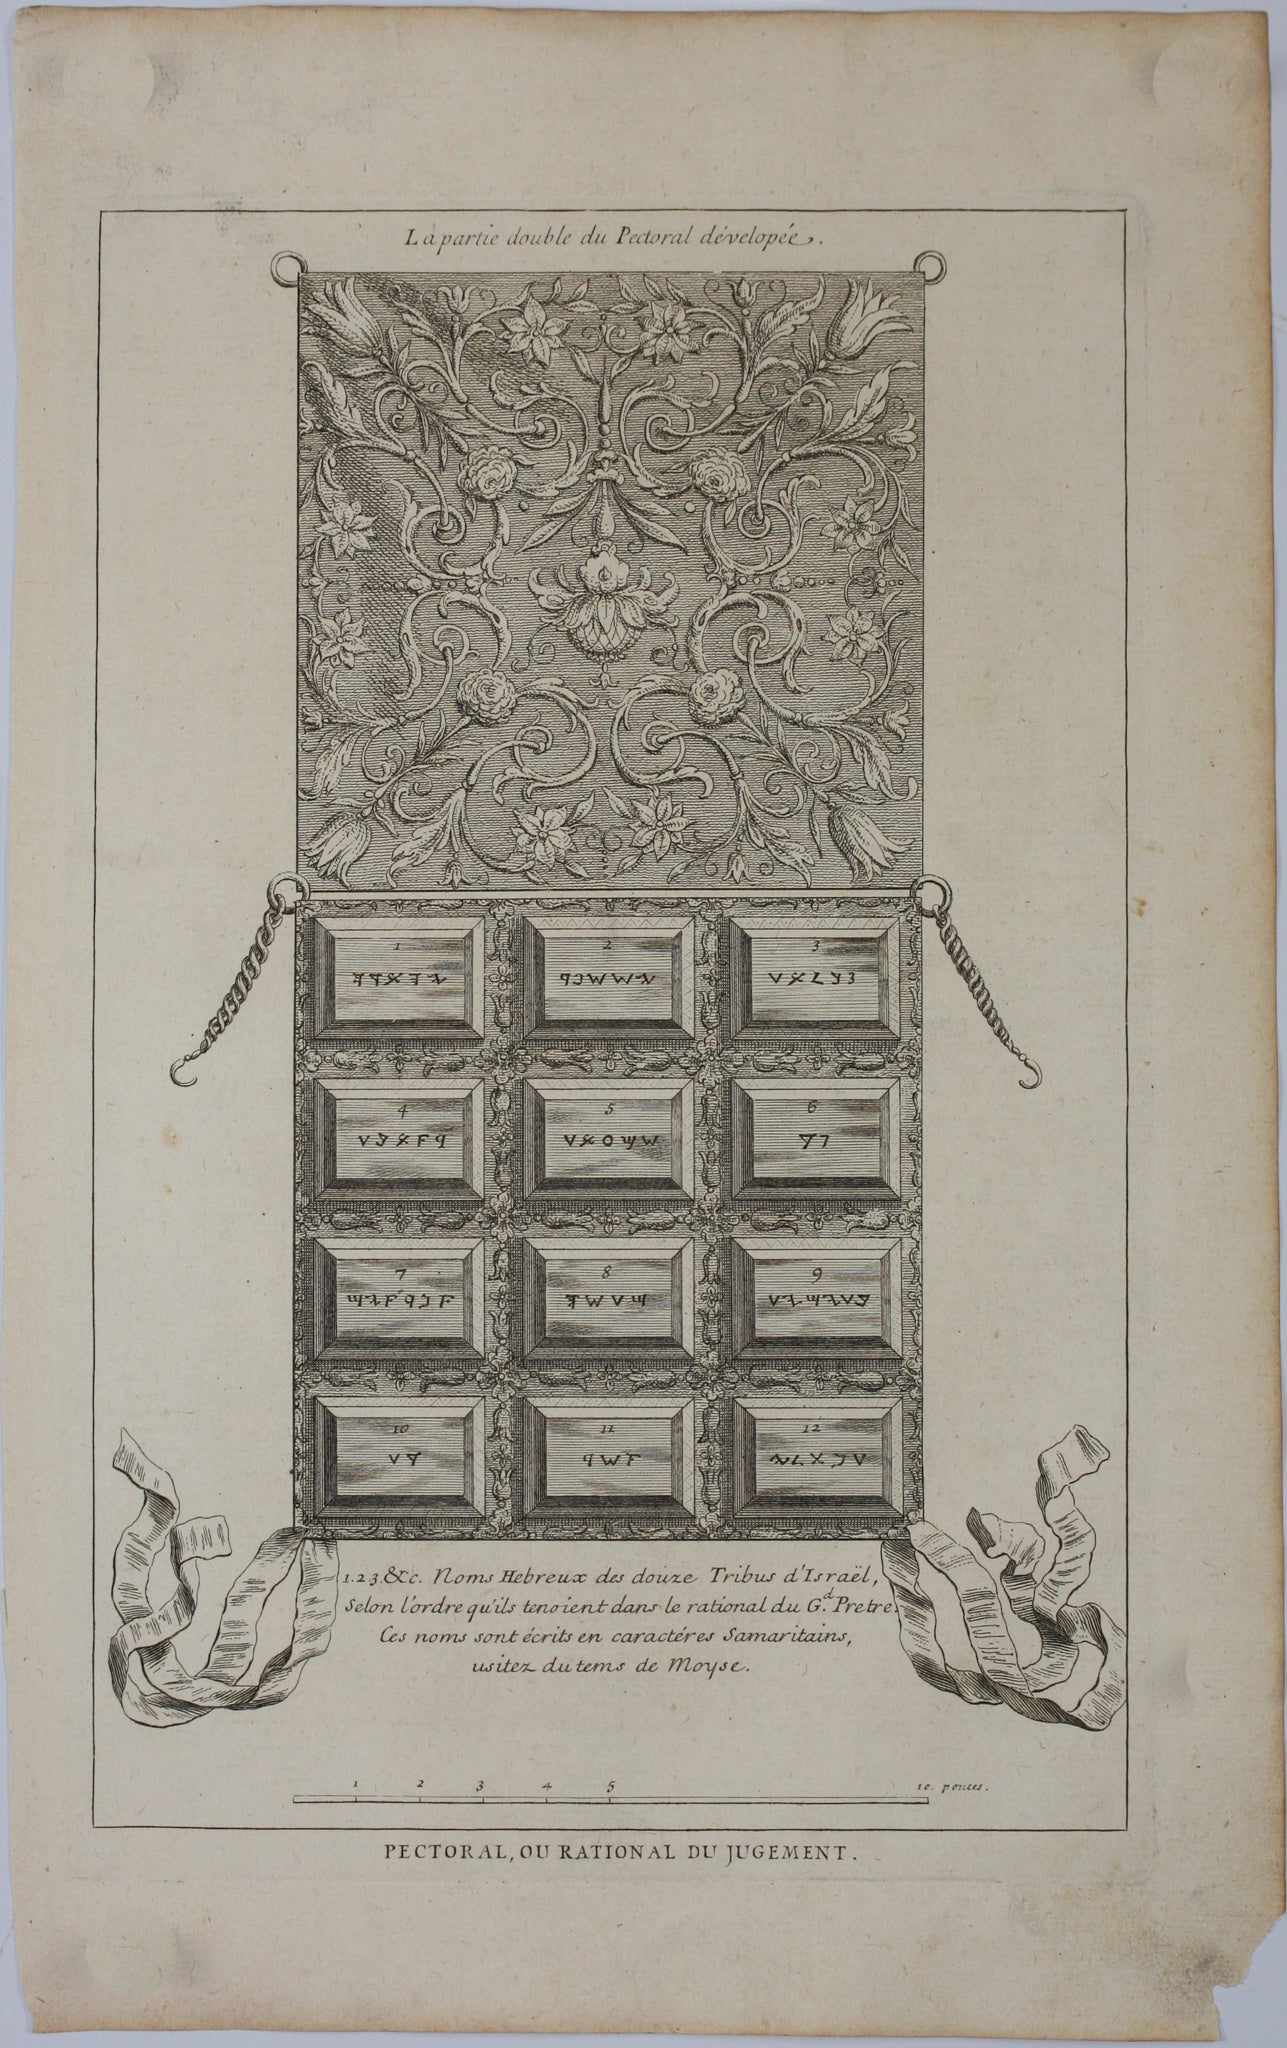 La partie double du Pectoral dévelopée.
1
2
3
4
5
6
7
8
9
10
11
12
1.2.3.&c. Noms Hebreux des douze Tribus d'Israël,
Selon l'ordre qu'ils tenoient dans le rational du G.d Pretre.
Ces noms sont écrits en caractéres Samaritains,
usitez du tems de Moyse.
1 2 3 4 5 10. pouces.
PECTORAL, OU RATIONAL DU JUGEMENT.